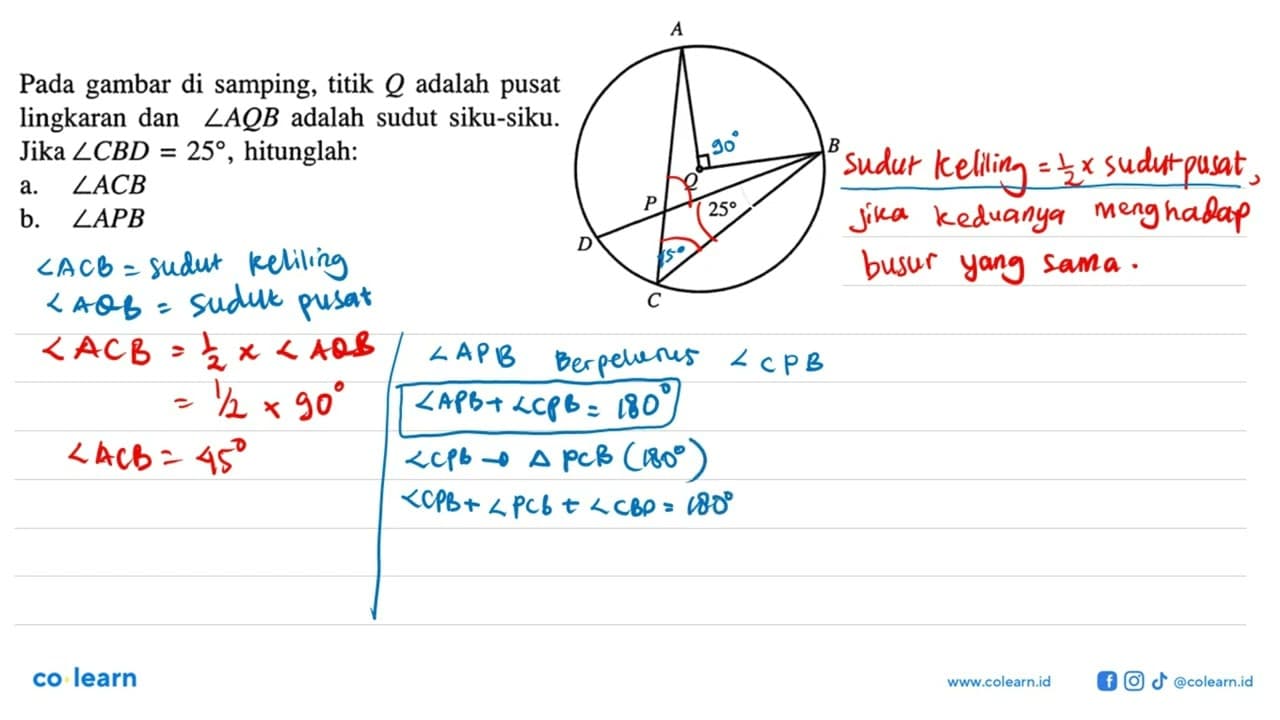 Pada gambar di samping, titik Q adalah pusat
lingkaran dan ∠AQB adalah sudut siku-siku.
Jika ∠CBD = 25°, hitunglah:
a. ∠ACB
b. ∠APB
A
90°
B
Q
P
25°
D
45°
C
Sudut keliling = 1/2 x sudut pusat,
jika keduanya menghadap
busur yang sama.
∠ACB = sudut keliling
∠AQB = Sudut pusat
∠ACB = 1/2 x ∠AQB
= 1/2 x 90°
∠ACB = 45°
∠APB Berpelurus ∠CPB
∠APB + ∠CPB = 180°
∠CPB → Δ PCB (180°)
∠CPB + ∠PCB + ∠CBP = 180°
co learn
www.colearn.id
@colearn.id